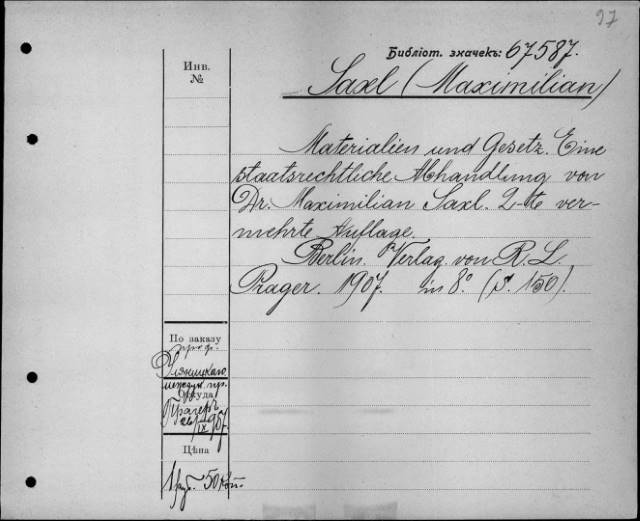 97
Библіот. значекъ: 67587.
Инв.
№
Saxl (Maximilian)
Materialien und Gesetz. Eine
staatsrechtliche Abhandlung von
Dr. Maximilian Saxl. 2-te ver-
mehrte Auflage.
Berlin. Verlag von R. L.
Prager. 1907. in 8º. (S. 150).
По заказу
прив.-
Уляницкаго
междун. пр.
Откуда
Прагеръ
26/IX 907.
Цѣна
1 руб. 50 коп.